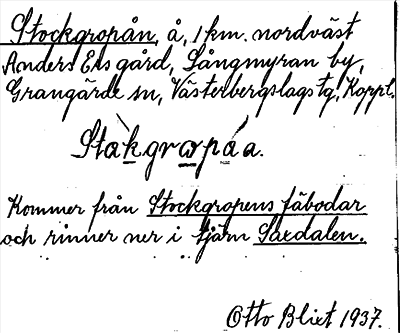 Stockgropån, å, 1 km. nordväst
Anders Ersgård, Långmyran by,
Grangärde sn, Västerbergslags tg, Koppl.
Stàkgrωpáa.
Kommer från Stockgropens fäbodar
och rinner ner i tjärn Saxdalen.
Otto Blixt 1937.